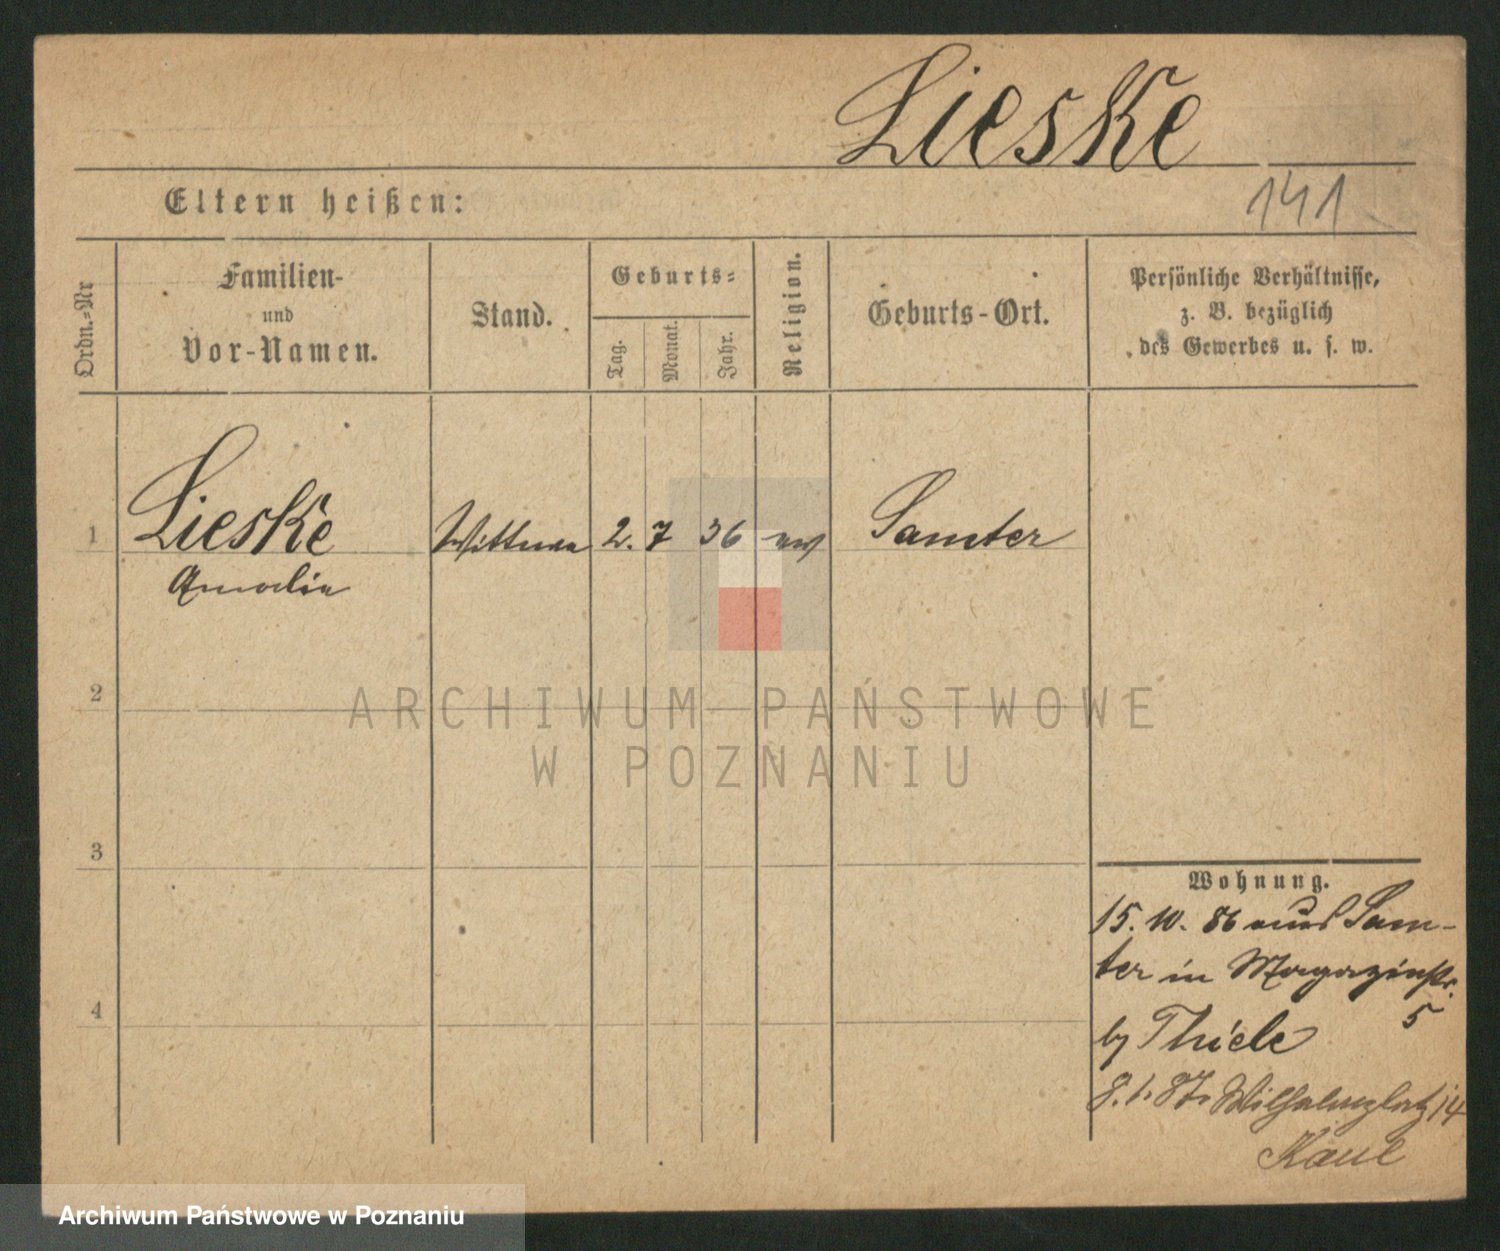 Lieske
Eltern heißen:
141
Ordn.-Nr
Familien-
und
Vor-Namen.
Stand.
Geburts-
Tag.
Monat.
Jahr.
Religion.
Geburts-Ort.
Persönliche Verhältnisse,
z. B. bezüglich
des Gewerbes u. s. w.
1
Lieske
Amalie
Wittwe
2. 7 36
ev
Samter
2
3
4
Wohnung.
15. 10. 86 aus Sam-
ter in Magazinstr.
5
by Thiele
8. 1. 87. Wilhelmplatz 14
Kaul
ARCHIWUM PAŃSTWOWE
W POZNANIU
Archiwum Państwowe w Poznaniu